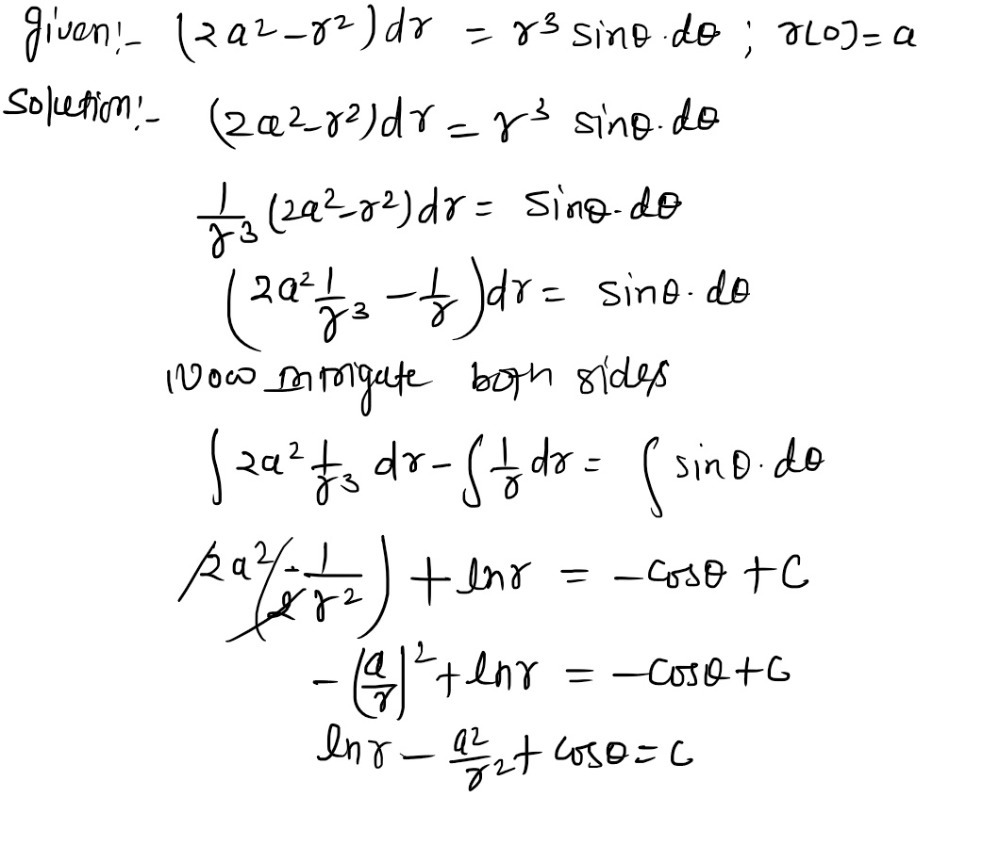 given:- (2a²-r²)dr = r³ sinθ.dθ ; r(0)=a
Solution:- (2a²-r²)dr = r³ sinθ.dθ
1/r³ (2a²-r²)dr = sinθ.dθ
(2a² 1/r³ - 1/r)dr = sinθ.dθ
Now intrigate both sides
∫ 2a² 1/r³ dr - ∫ 1/r dr = ∫ sinθ.dθ
2a²(-1/2r²) + lnr = -cosθ + C
-(a/r)² + lnr = -cosθ + C
lnr - a²/r² + cosθ = C